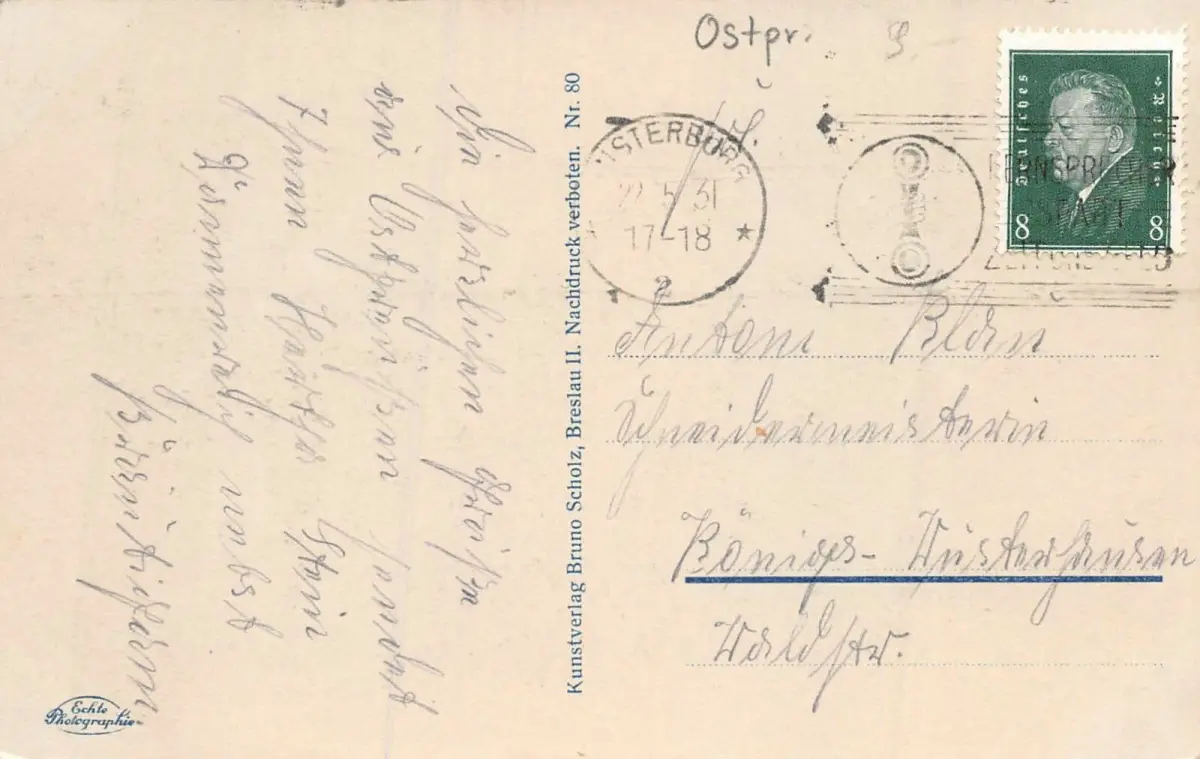 Ostpr.
Deutsches Reich
8 8
INSTERBURG
22.5.31
17-18
2
FERNSPRECHER
SPART
ZEIT UND GELD
Die herzlichsten Grüße
aus Ostpreußen sendet
Ihnen
nebst
Bräutigam
Kunstverlag Bruno Scholz, Breslau II. Nachdruck verboten. Nr. 80
Echte Photographie
Schneidermeisterin
Königs-Wusterhausen
Waldstr.